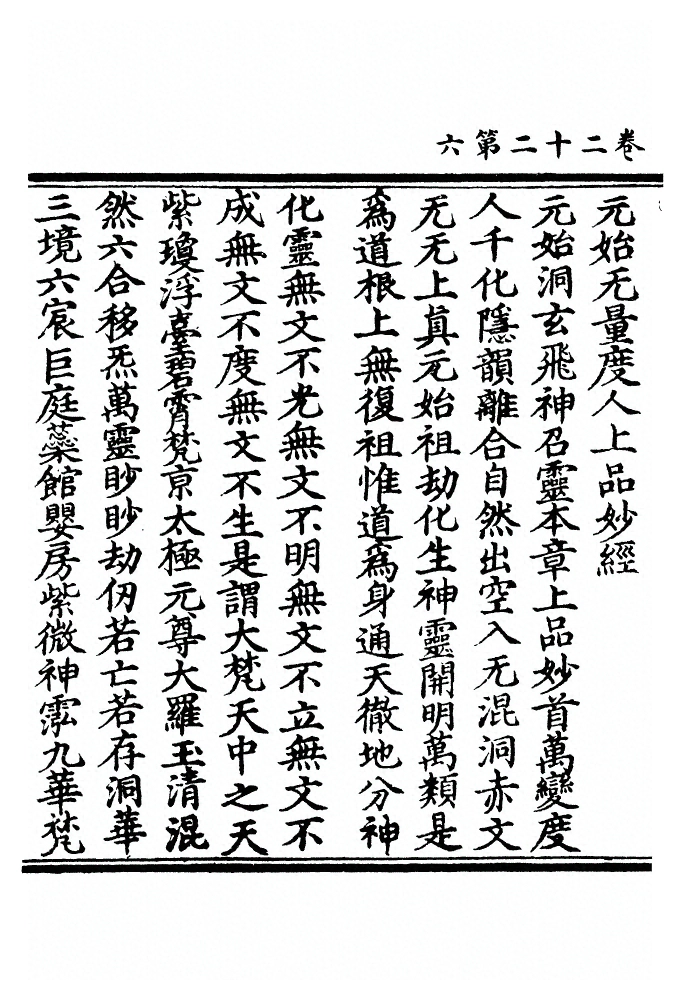 卷二十二第六
元始无量度人上品妙經
元始洞玄飛神召靈本章上品妙首萬變度
人千化隱韻離合自然出空入无混洞赤文
无无上眞元始祖劫化生神靈開明萬類是
爲道根上無復祖惟道爲身通天徹地分神
化靈無文不光無文不明無文不立無文不
成無文不度無文不生是謂大梵天中之天
紫瓊浮臺碧霄梵京太極元尊大羅玉清混
然六合移炁萬靈眇眇劫仞若亡若存洞華
三境六宸巨庭蘂館嬰房紫微神霐九華梵